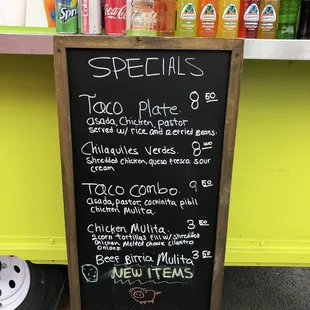 Sprite
Coca-Cola
SPECIALS
Taco Plate. 8 50
Asada, Chicken, pastor
served w/ rice and Refried Beans.
Chilaquiles Verdes. 8
Shredded chicken, queso fresca, sour
cream
Taco Combo. 9 50
Asada, pastor, cochinita pibil
Chicken Mulita.
Chicken Mulita 3 50
2 corn tortillas fill w/ shredded
Chicken Melted cheese cilantro
Onions.
Beef Birria Mulita 3 50
NEW ITEMS